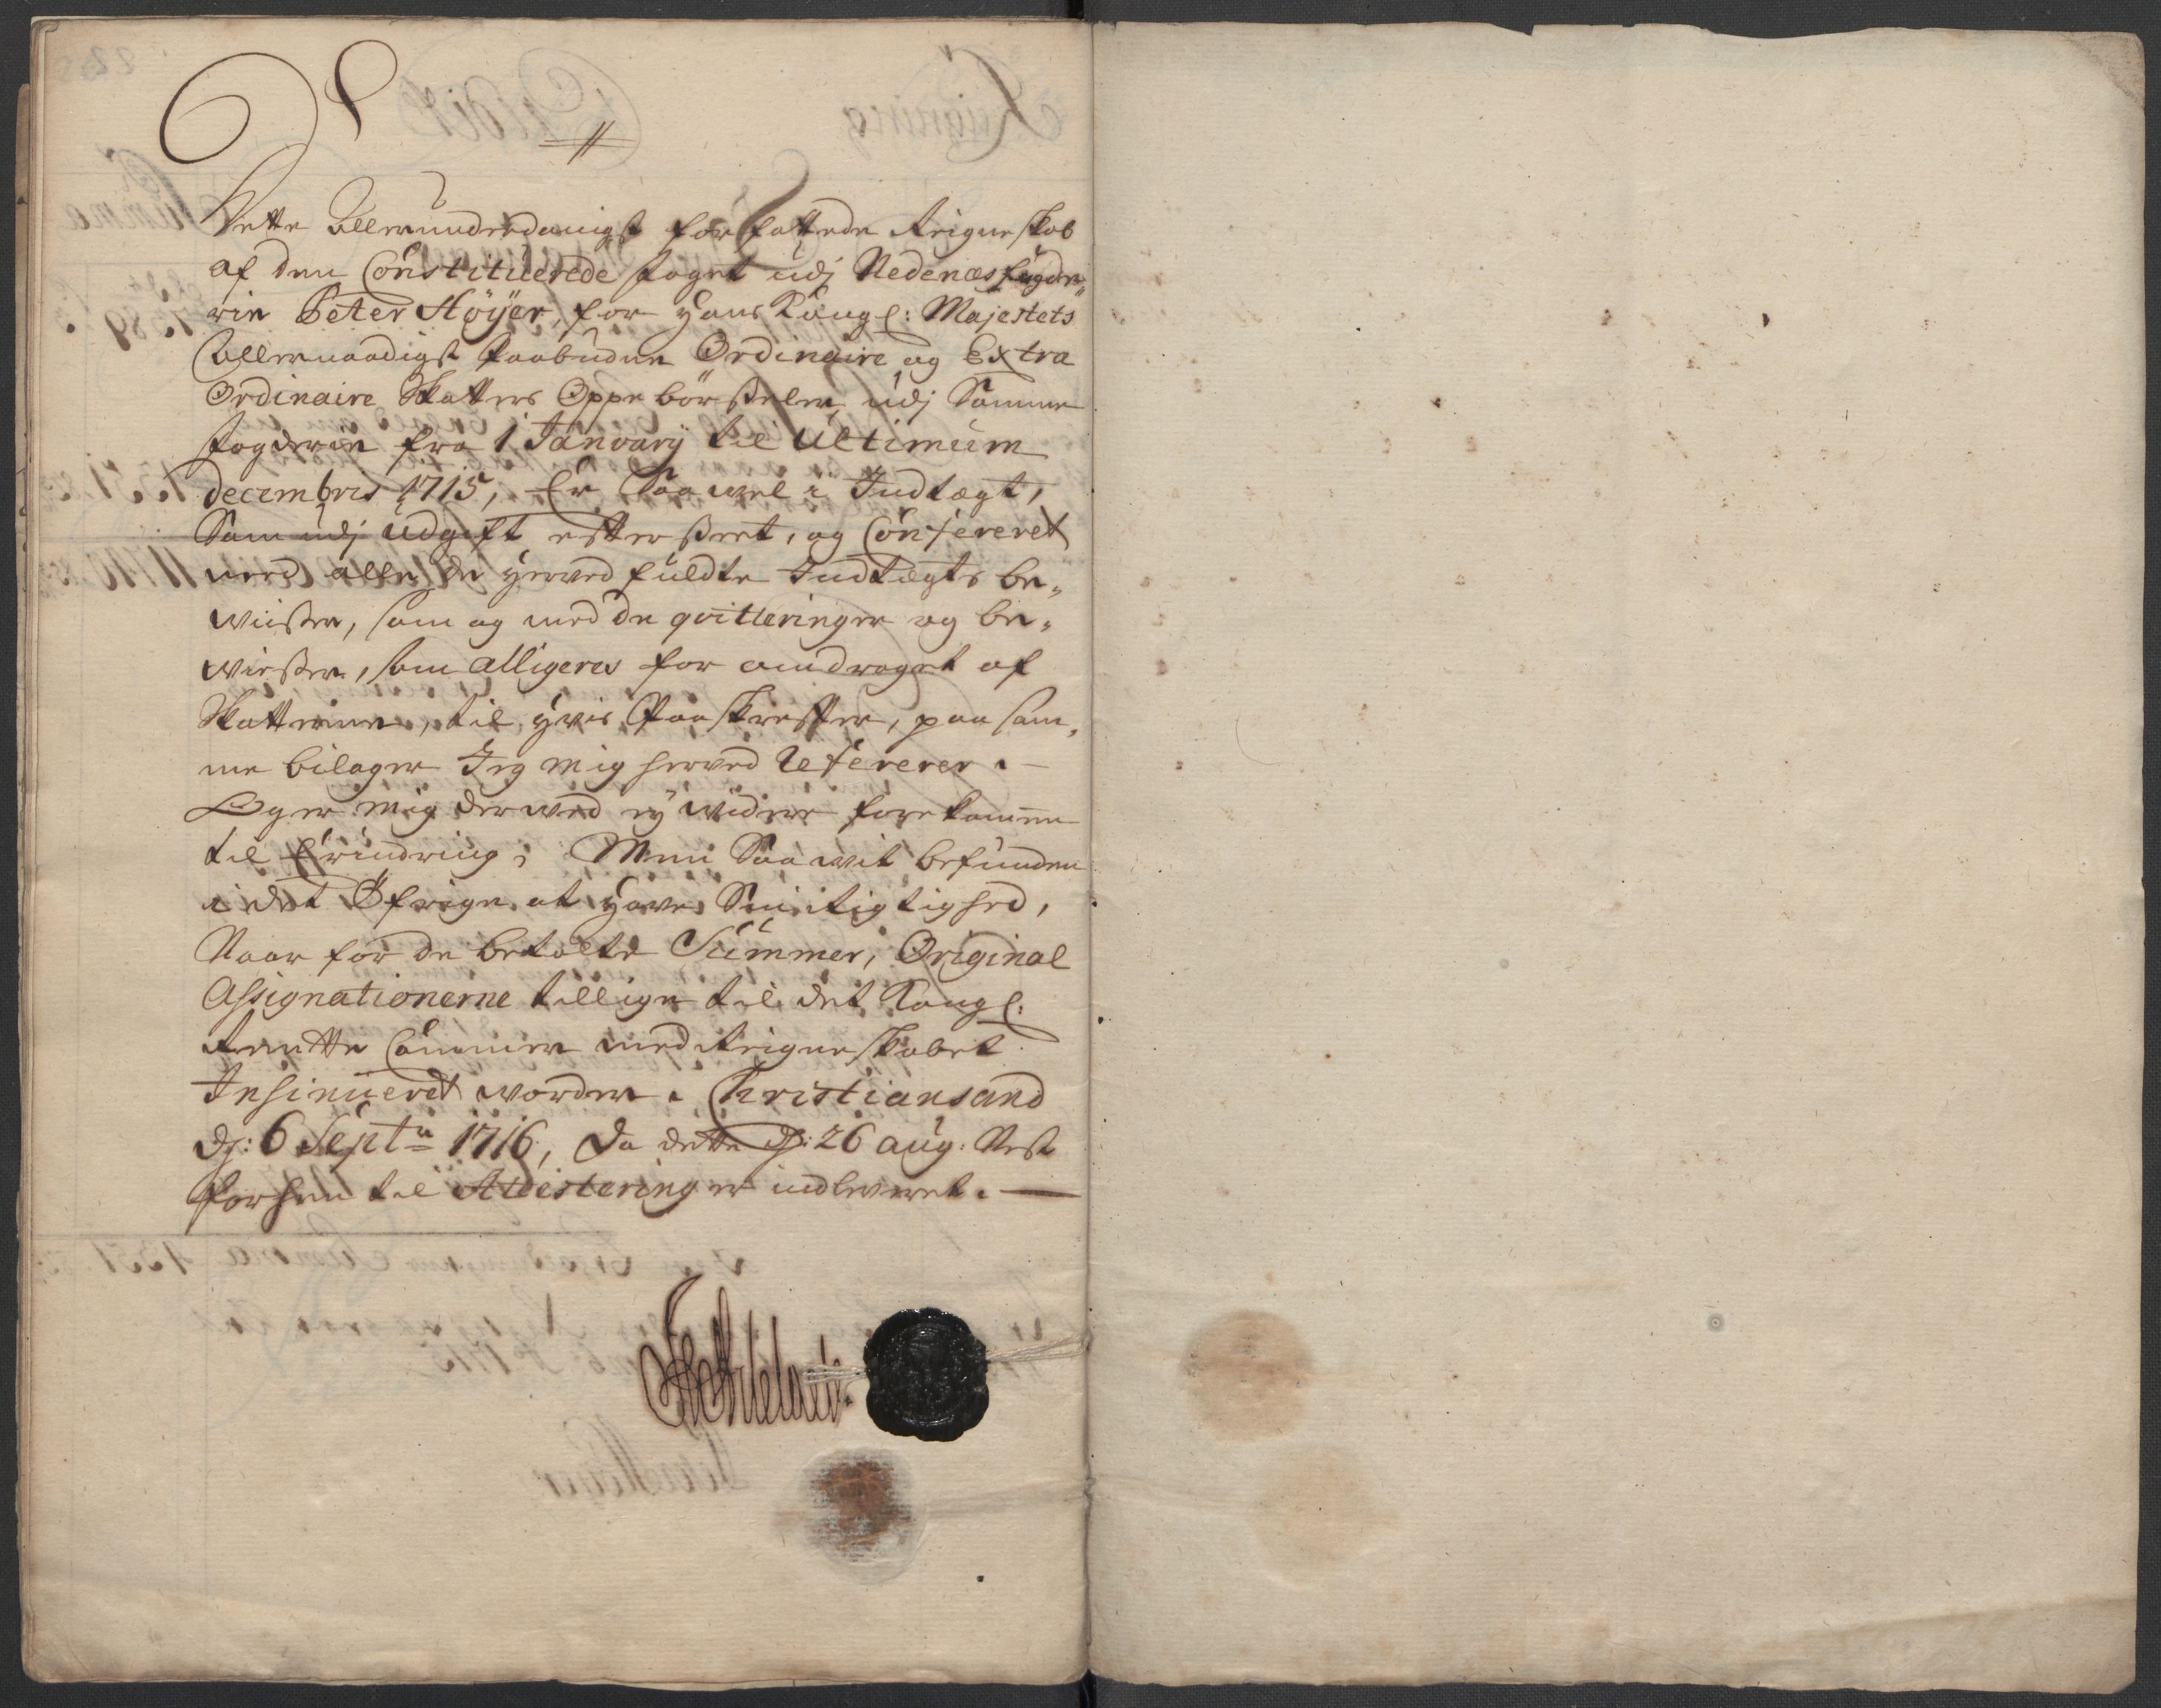 Dette Allerunderdanigst forfattede Reigneskob
af den Constituerede foget udj Nedenæs fogde„
rie Peter Höÿer, for Hans Kongl: Majestets
Allernaadigst Paabudne Ordinaire og Extra
Ordinaire Skatters Oppebörßeler, udj Samme
fogderie fra 1 Januarÿ til Ultimum
decembris 1715, Er Saa wel i Indtægt,
Som udj Udgift efterßeet, og Confereret
med alle de herved fuldte Indtægts be„
wiißer, som og med de qvitteringer og be„
wiißer, som alligeres for andraget af
Skatterne, til hvis Paaskrefter, paa sam„
me bilager Jeg mig herved Refererer.
Og er mig derwed eÿ widere forekommen
til Erindring; Men Saa wit befunden
i det Öfrige at have Sin Rigtighed,
Naar for de betalte Summer, Original
Assignationerne tillige til det Kongl:
Rentte Cammer med Reigneskabet
Insinueret worder. Christiansand
dj: 6 Septr 1716, Da dette dj: 26 aug: Nest
forhen til Attestering er indleweret.